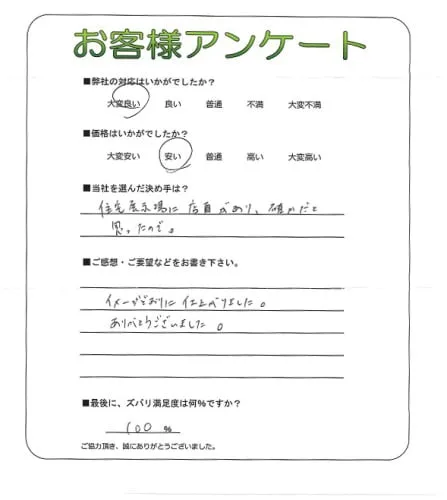 お客様アンケート
■弊社の対応はいかがでしたか?
大変良い 良い 普通 不満 大変不満
■価格はいかがでしたか?
大変安い 安い 普通 高い 大変高い
■当社を選んだ決め手は?
住宅展示場に店員があり、確かだと
思ったので。
■ご感想・ご要望などをお書き下さい。
イメージどおりに仕上がりました。
ありがとうございました。
■最後に、ズバリ満足度は何%ですか?
100 %
ご協力頂き、誠にありがとうございました。